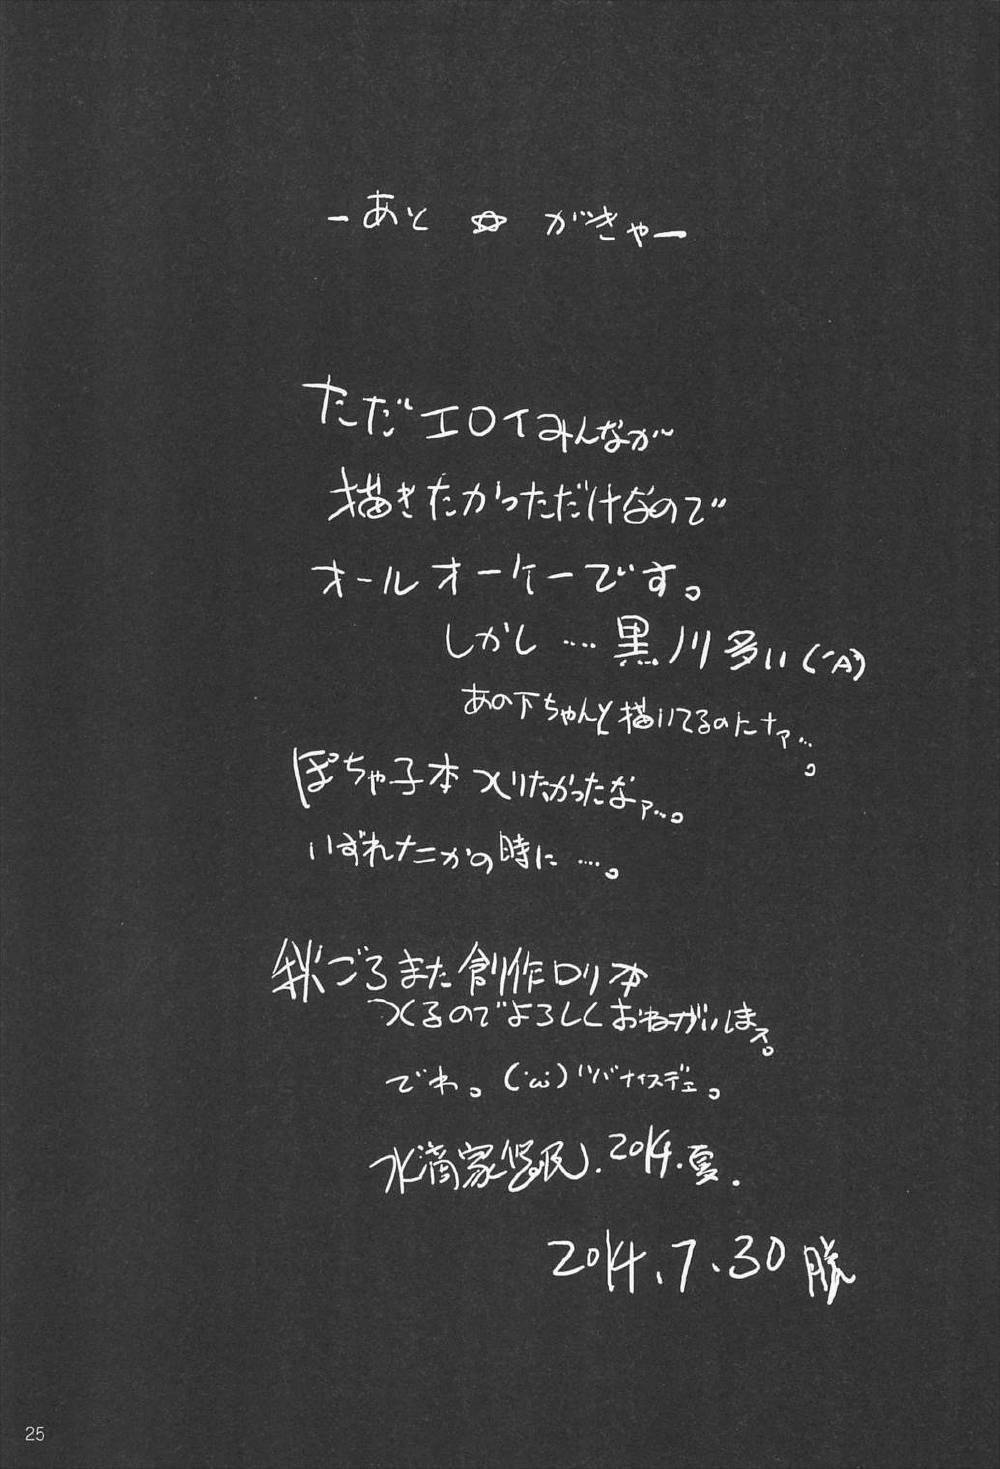 ーあと☆がきゃー
ただエロイみんなが
描きたかっただけなので
オールオーケーです。
しかし‥‥黒ノリ多い(´A`)
あの下ちゃんと描いてるのにナァ…。
ぽちゃ子本つくりたかったなァ…。
いずれナニかの時に‥‥。
秋ごろまた創作ロリ本
つくるのでよろしくおねがいします。
でわ。(´ω`)ツバナイスデェ。
水滴家 2014.夏.
2014.7.30
25